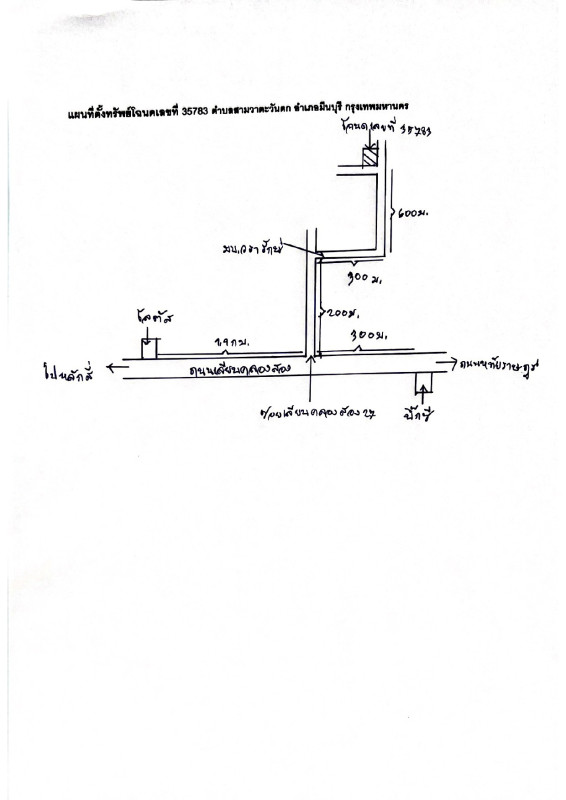 แผนที่ตั้งทรัพย์โฉนดเลขที่ 35783 ตำบลสามวาตะวันตก อำเภอมีนบุรี กรุงเทพมหานคร
โฉนดเลขที่ 35783
600 ม.
มบ.
300 ม.
200 ม.
โลตัส
กม.
300 ม.
ไปหลักสี่
ถนนเลียบคลองสอง
ถนนหทัยราษฎร์
ซอยเลียบคลองสอง 27
บิ๊กซี